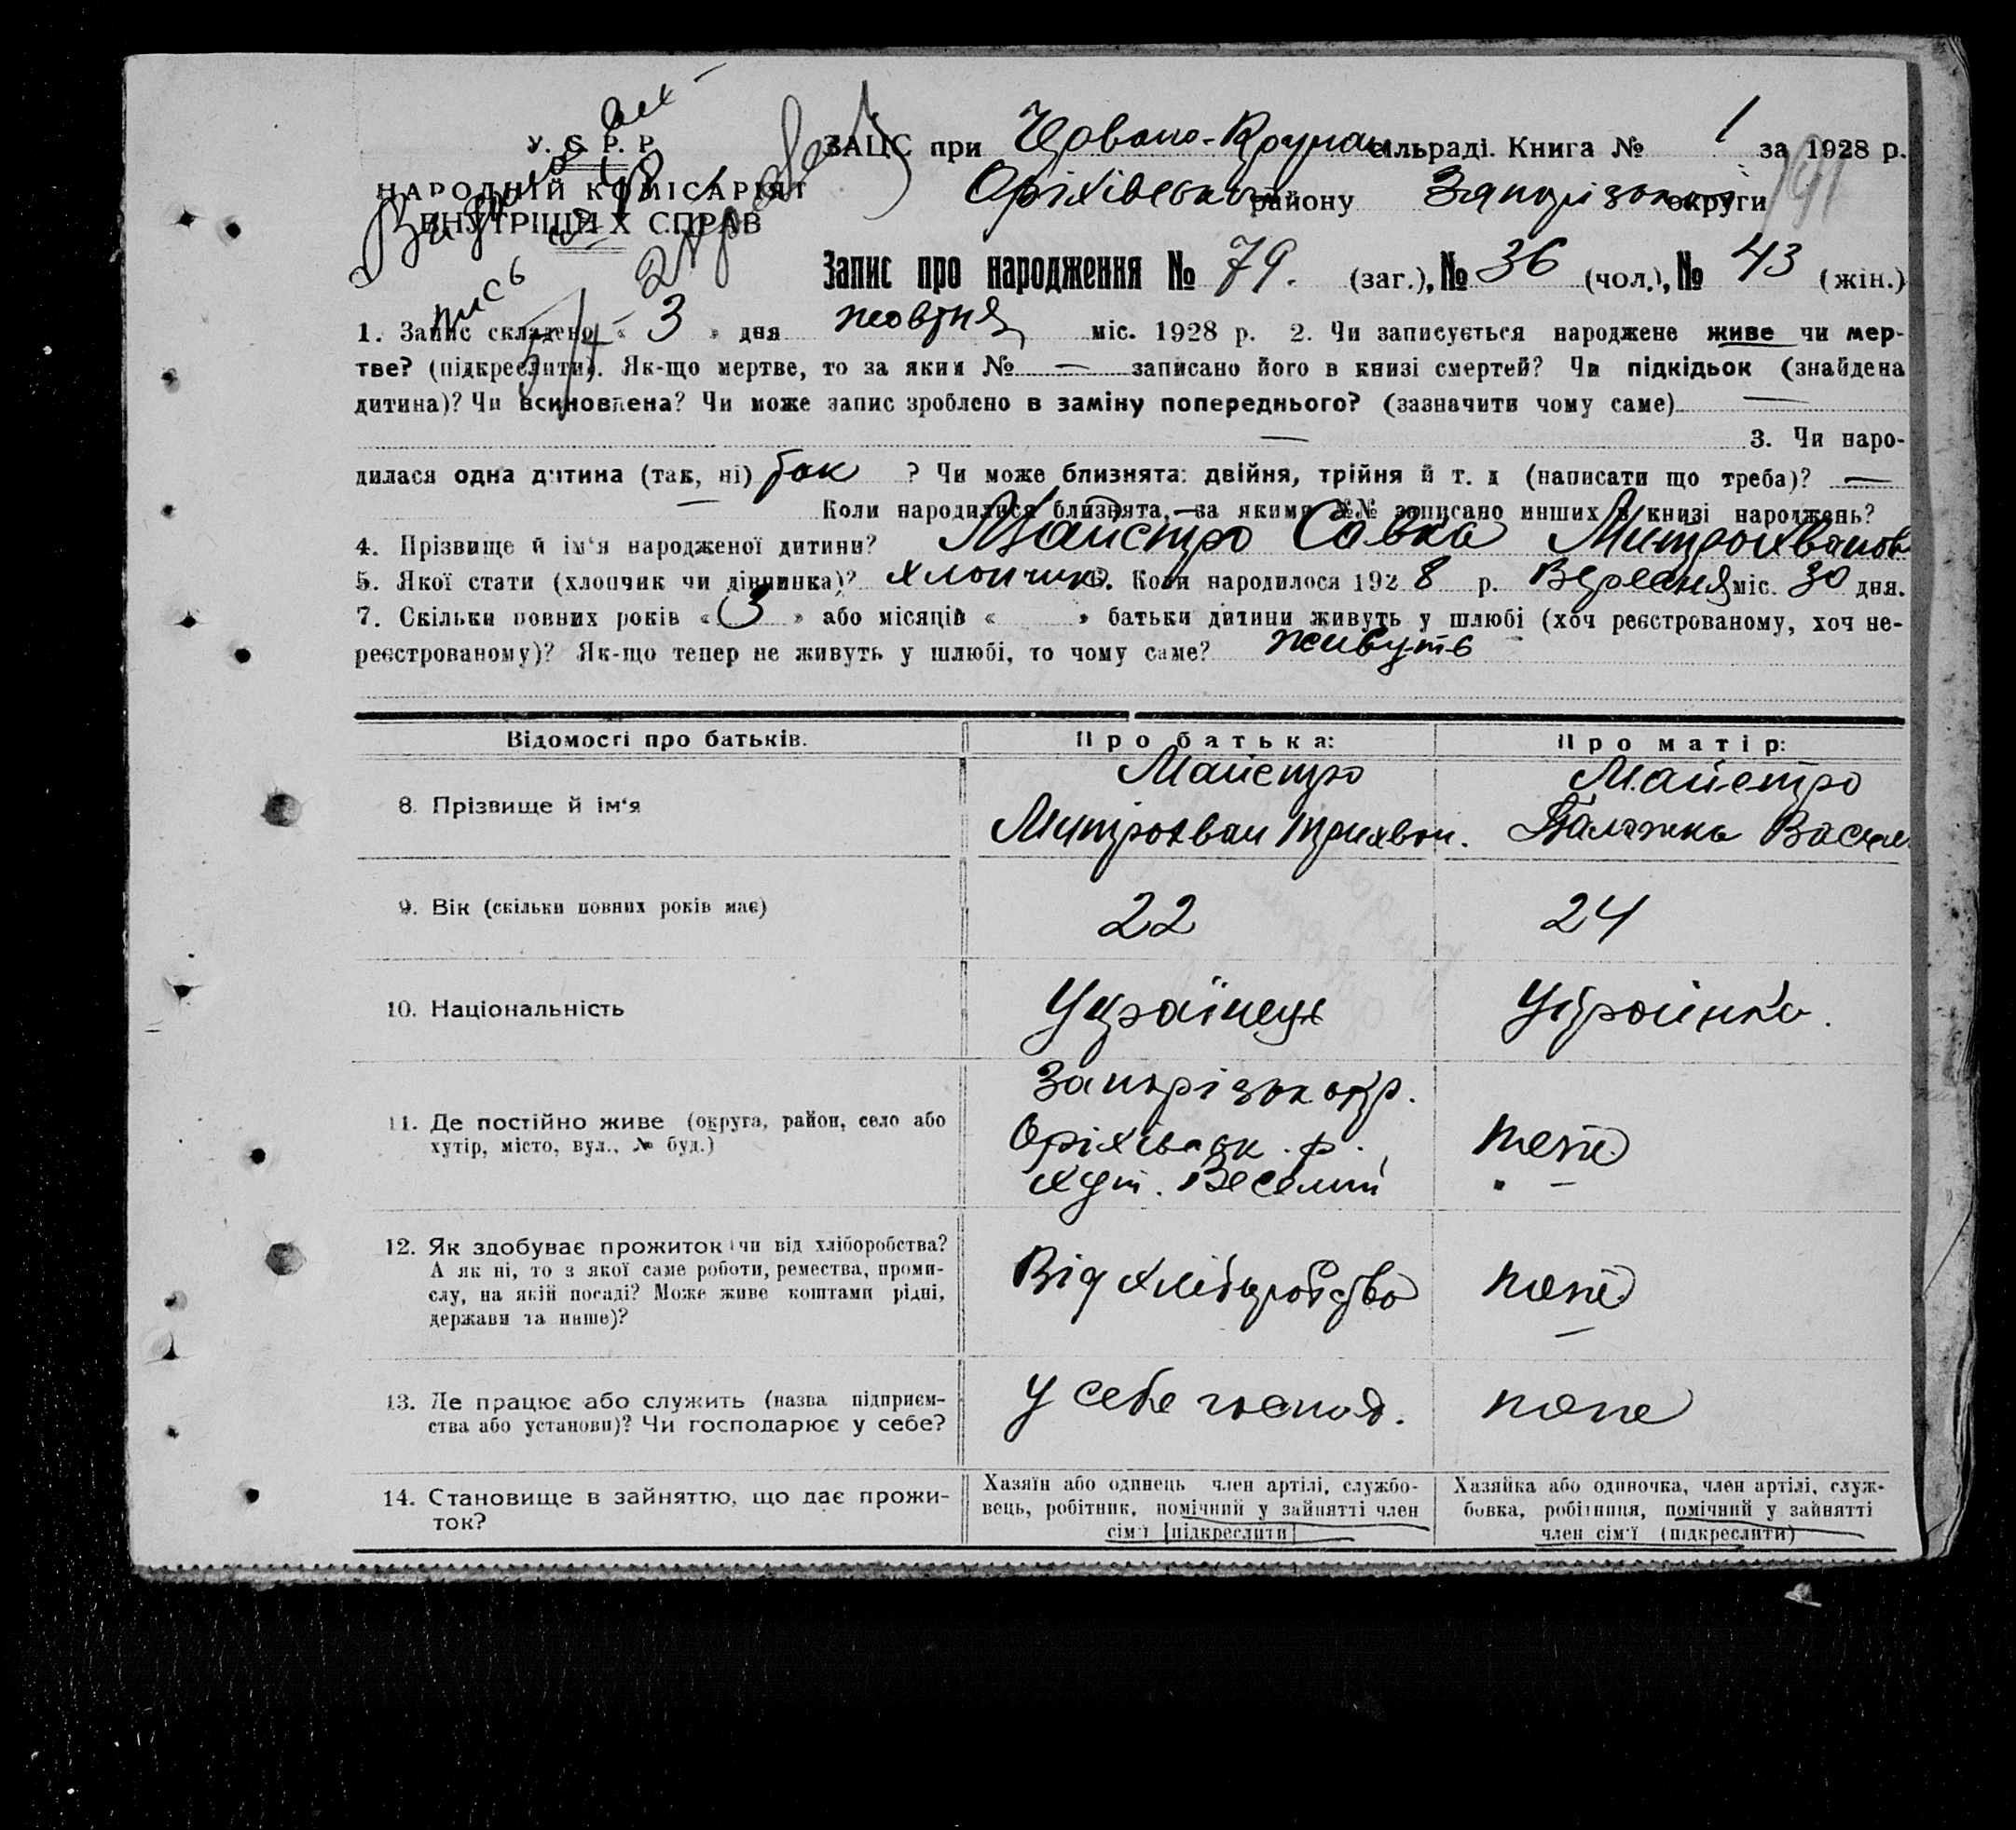 У. С. Р. Р.
НАРОДНІЙ КОМІСАРІЯТ
ВНУТРІШНІХ СПРАВ
ЗАЦС при Червоно- сільраді. Книга № 1 за 1928 р.
Оріхівського району Запорізької округи
191
Запис про народження № 79. (заг.), № 36 (чол.), № 43 (жін.)
1. Запис складено « 3 » дня жовтня міс. 1928 р. 2. Чи записується народжене живе чи мер-
тве? (підкреслити). Як-що мертве, то за яким № — записано його в книзі смертей? Чи підкідьок (знайдена
дитина)? Чи всиновлена? Чи може запис зроблено в заміну попереднього? (зазначити чому саме) —
— 3. Чи наро-
дилася одна дитина (так, ні) так ? Чи може близнята: двійня, трійня й т. д (написати що треба)? —
Коли народилися близнята, — за якими №№ записано инших в книзі народжень?
4. Прізвище й ім'я народженої дитини? Майстро Савка Митрохванов
5. Якої стати (хлопчик чи дівчинка)? хлопчик 6. Коли народилося 1928 р. Вересня міс. 30 дня.
7. Скільки повних років « 3 » або місяців « » батьки дитини живуть у шлюбі (хоч реєстрованому, хоч не-
реєстрованому)? Як-що тепер не живуть у шлюбі, то чому саме? живуть
Відомості про батьків. Про батька: Про матір:
8. Прізвище й ім'я
Майстро
Митрохван Трихвон.
Майстро
Палажка Васил
9. Вік (скільки повних років має) 22 24
10. Національність Українець Українка.
11. Де постійно живе (округа, район, село або
хутір, місто, вул., № буд.)
Запорізьк окр.
Оріхівськ. р.
хут. Веселий
теж
12. Як здобуває прожиток (чи від хліборобства?
А як ні, то з якої саме роботи, ремества, проми-
слу, на якій посаді? Може живе коштами рідні,
держави та инше)?
Від хліборобства
теж
13. Де працює або служить (назва підприєм-
ства або установи)? Чи господарює у себе?
У себе господ.
теж
14. Становище в зайняттю, що дає прожи-
ток?
Хазяїн або одинець член артілі, службо-
вець, робітник, помічний у зайнятті член
сім'ї [підкреслити]
Хазяйка або одиночка, член артілі, служ-
бовка, робітниця, помічний у зайнятті
член сім'ї (підкреслити)